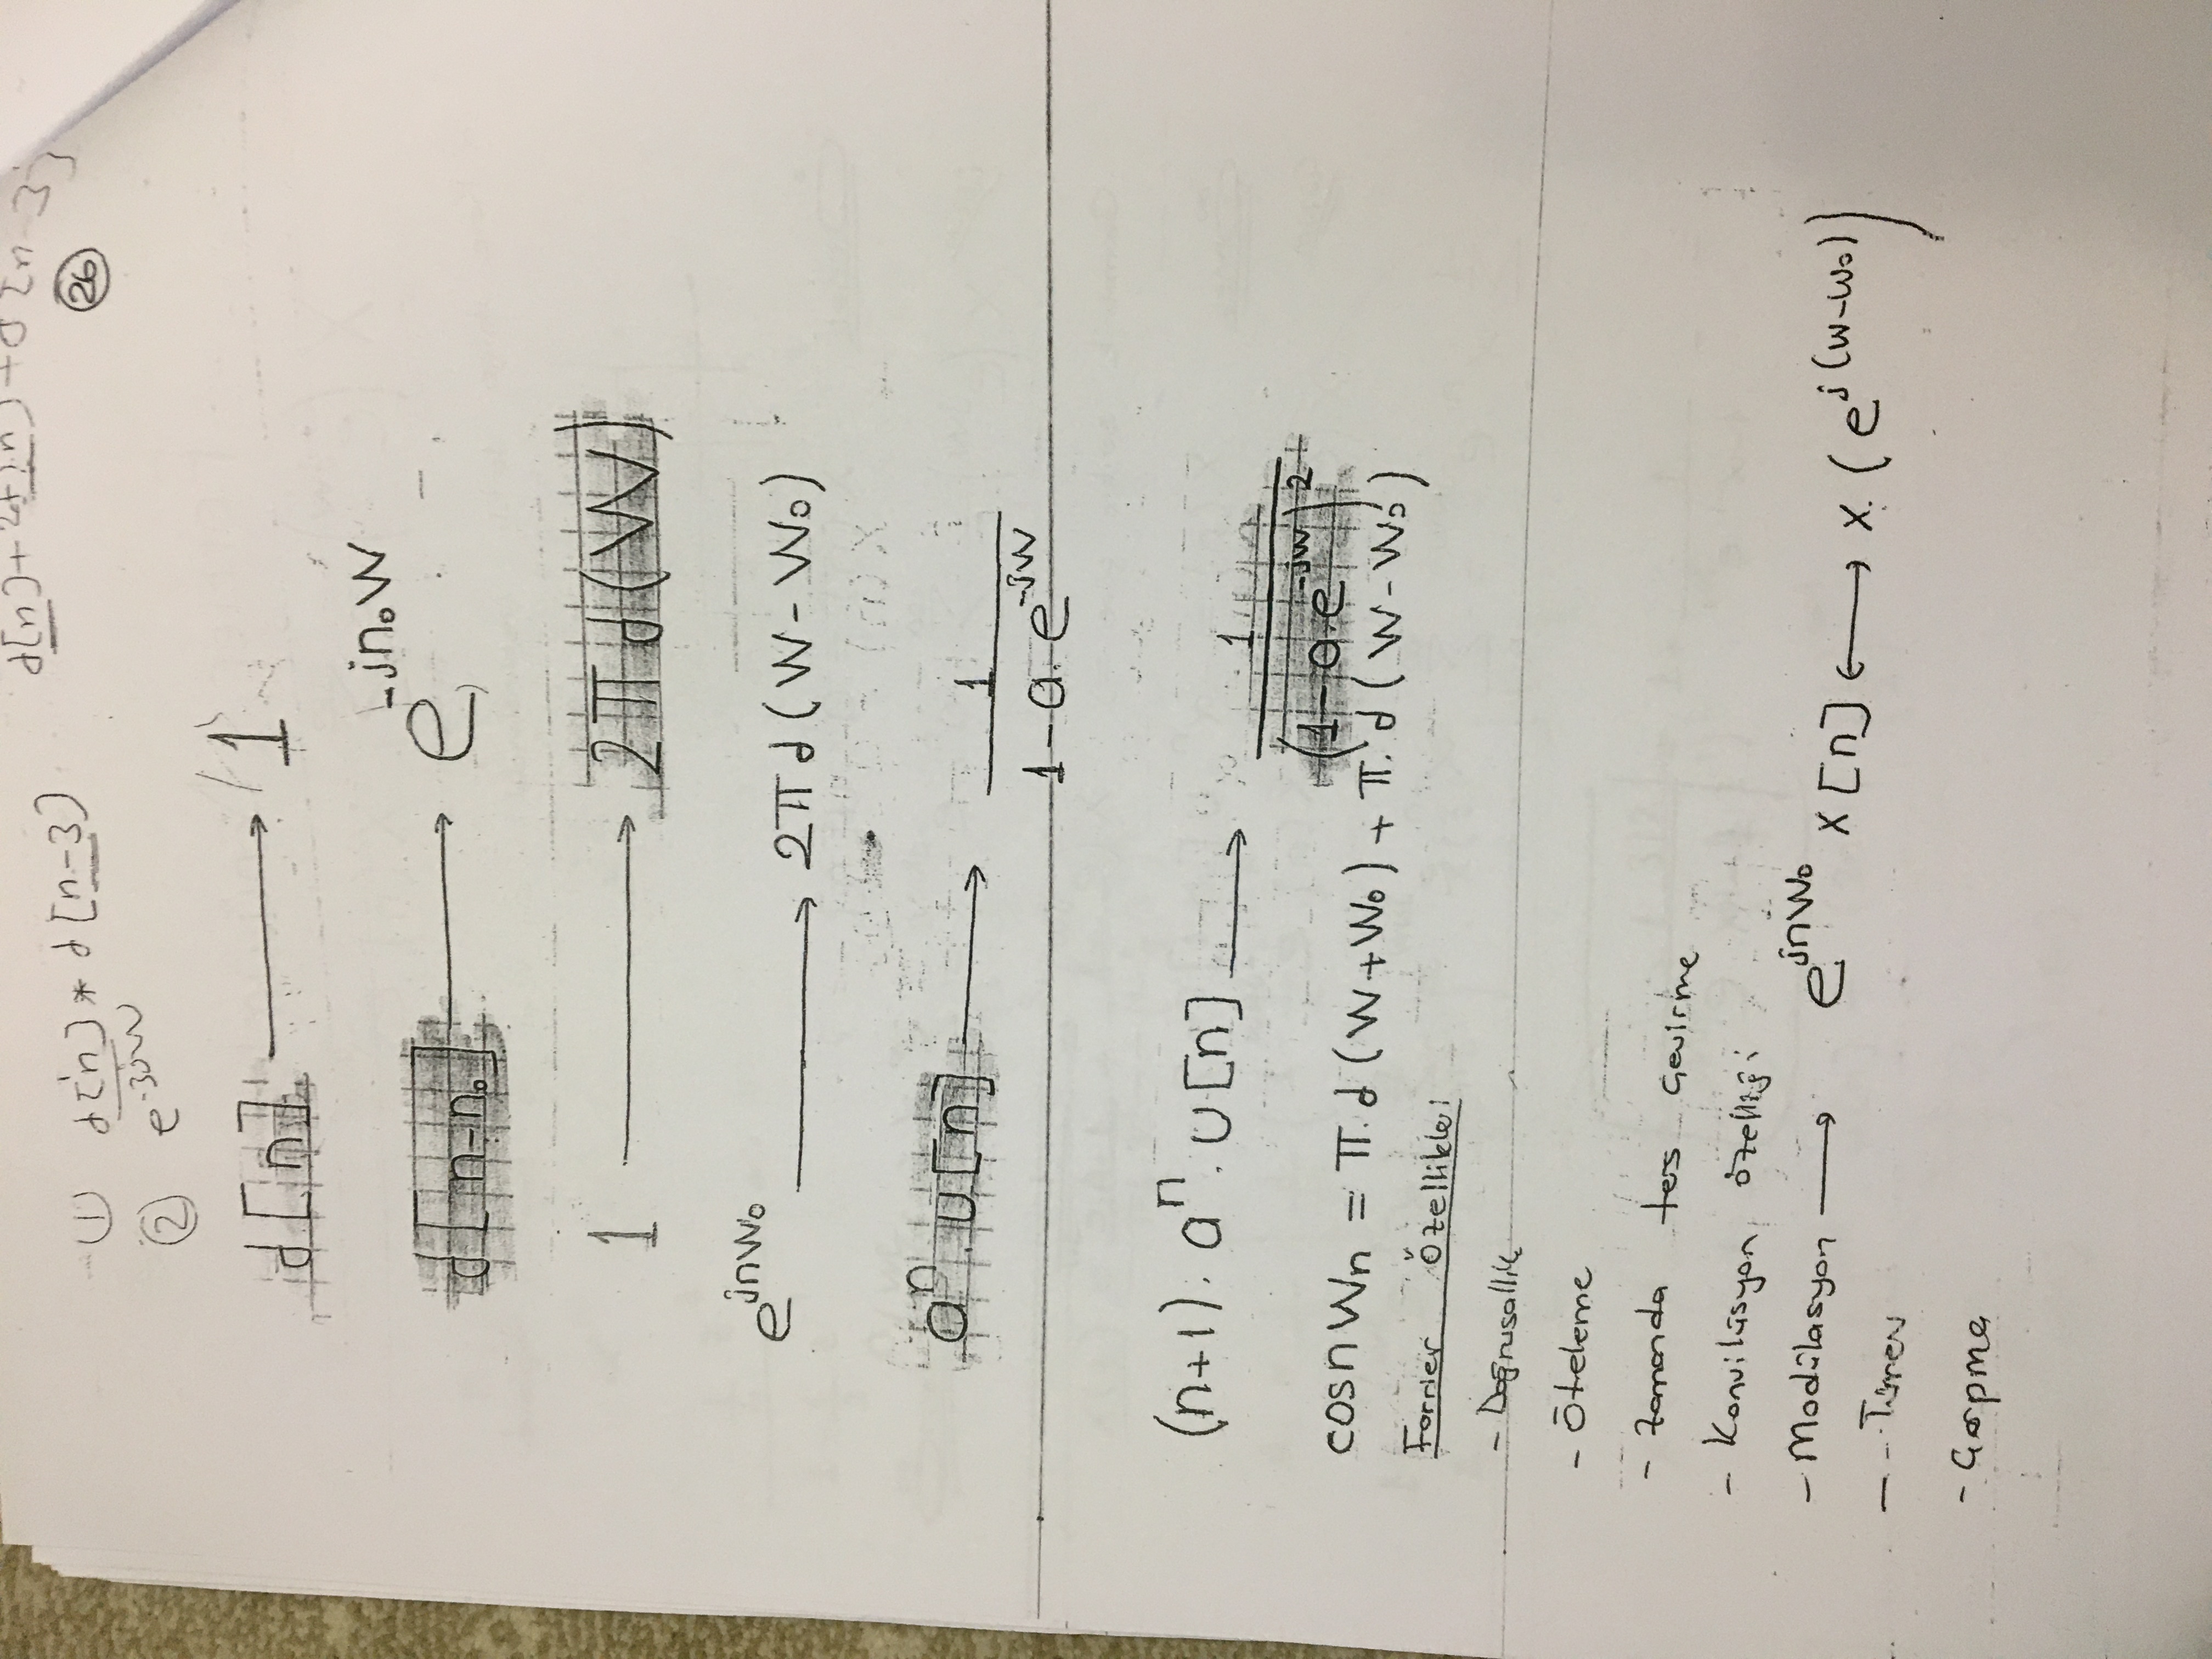 d[n] + 2d[n] + d[n-3]
26
① d[n] * d[n-3]
② e^-3jw
d[n] → 1
d[n-n₀] → e^-jn₀W
1 → 2π d(W)
e^jnW₀ → 2π d(W-W₀)
aⁿ. u[n] → 1 / (1-a.e^-jw)
(n+1). aⁿ. u[n] → 1 / (1-a.e^-jw)²
cosn Wn = π.d(W+W₀) + π.d(W-W₀)
Forrier Özellikleri
- Doğrusallık
- Öteleme
- Zamanda ters Çevirme
- Konvilüsyon özelliği
- Modülasyon → e^jnW₀ x[n] ↔ x.(e^j(w-w₀))
- Türev
- Çarpma